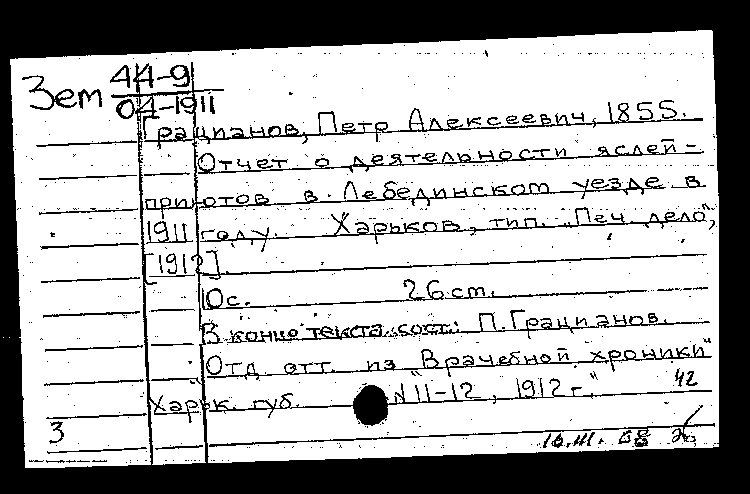 Зем 44-9
04-1911
Грацианов, Петр Алексеевич, 1855.
Отчет о деятельности яслей-
приютов в Лебединском уезде в
1911 году. Харьков, тип. „Печ. дело",
[1912].
10с. 26 cm.
В конце текста сост.: П. Грацианов.
Отд. отт. из „Врачебной хроники
Харьк. губ. N 11-12, 1912 г."
42
3
16.III.68